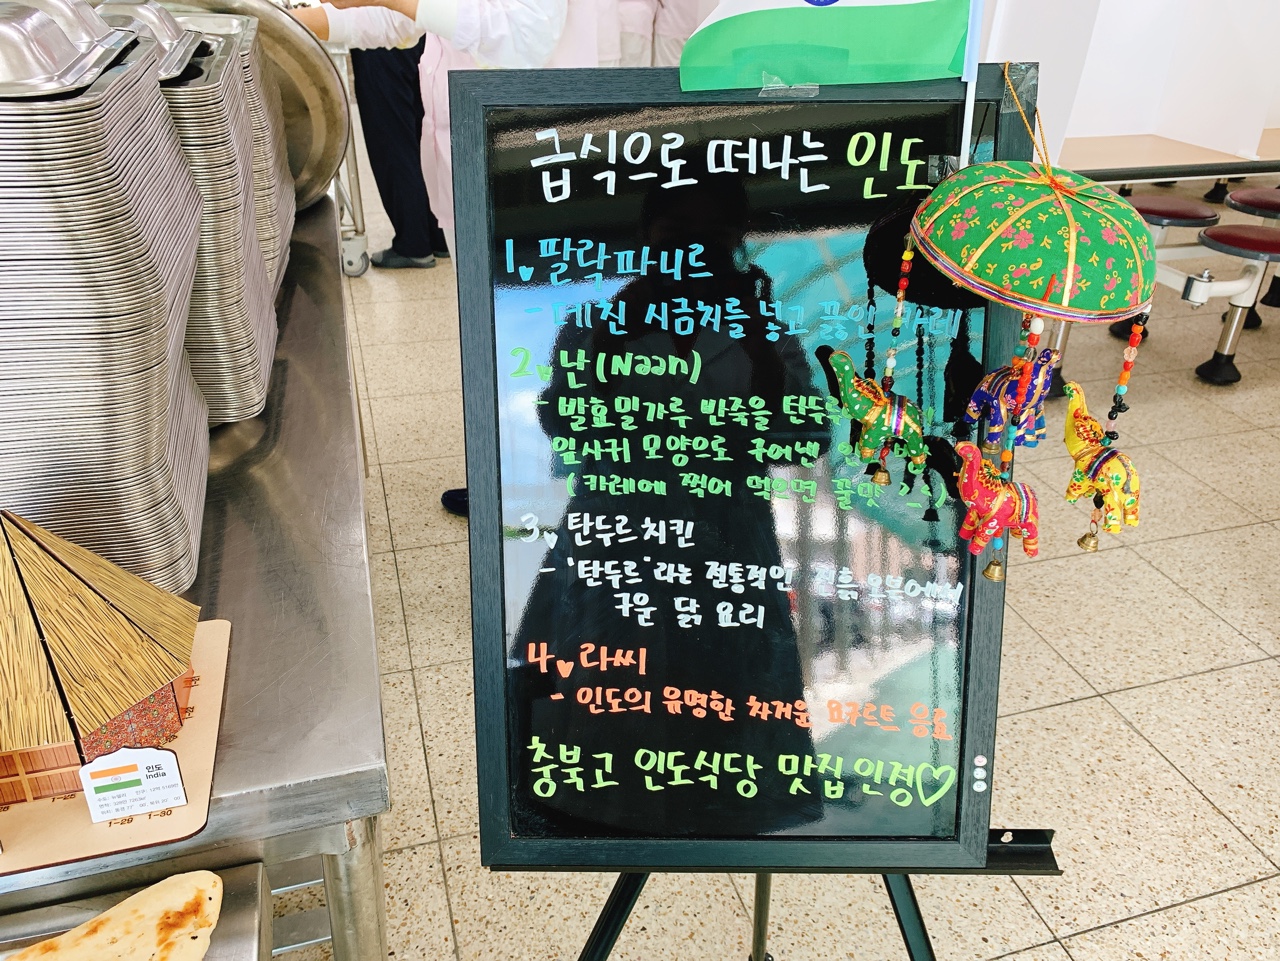 급식으로 떠나는 인도
1. 팔락파니르
- 데친 시금치를 넣고 끓인 카레
2. 난(Naan)
- 발효밀가루 반죽을 탄두르
잎사귀 모양으로 구어낸
(카레에 찍어 먹으면 꿀맛
3. 탄두르치킨
- '탄두르'라는 전통적인 진흙 오븐에서
구운 닭 요리
4. 라씨
- 인도의 유명한 차거운 요구르트 음료
충북고 인도식당 맛집인정♡
인도
India
1-25
1-29 1-30